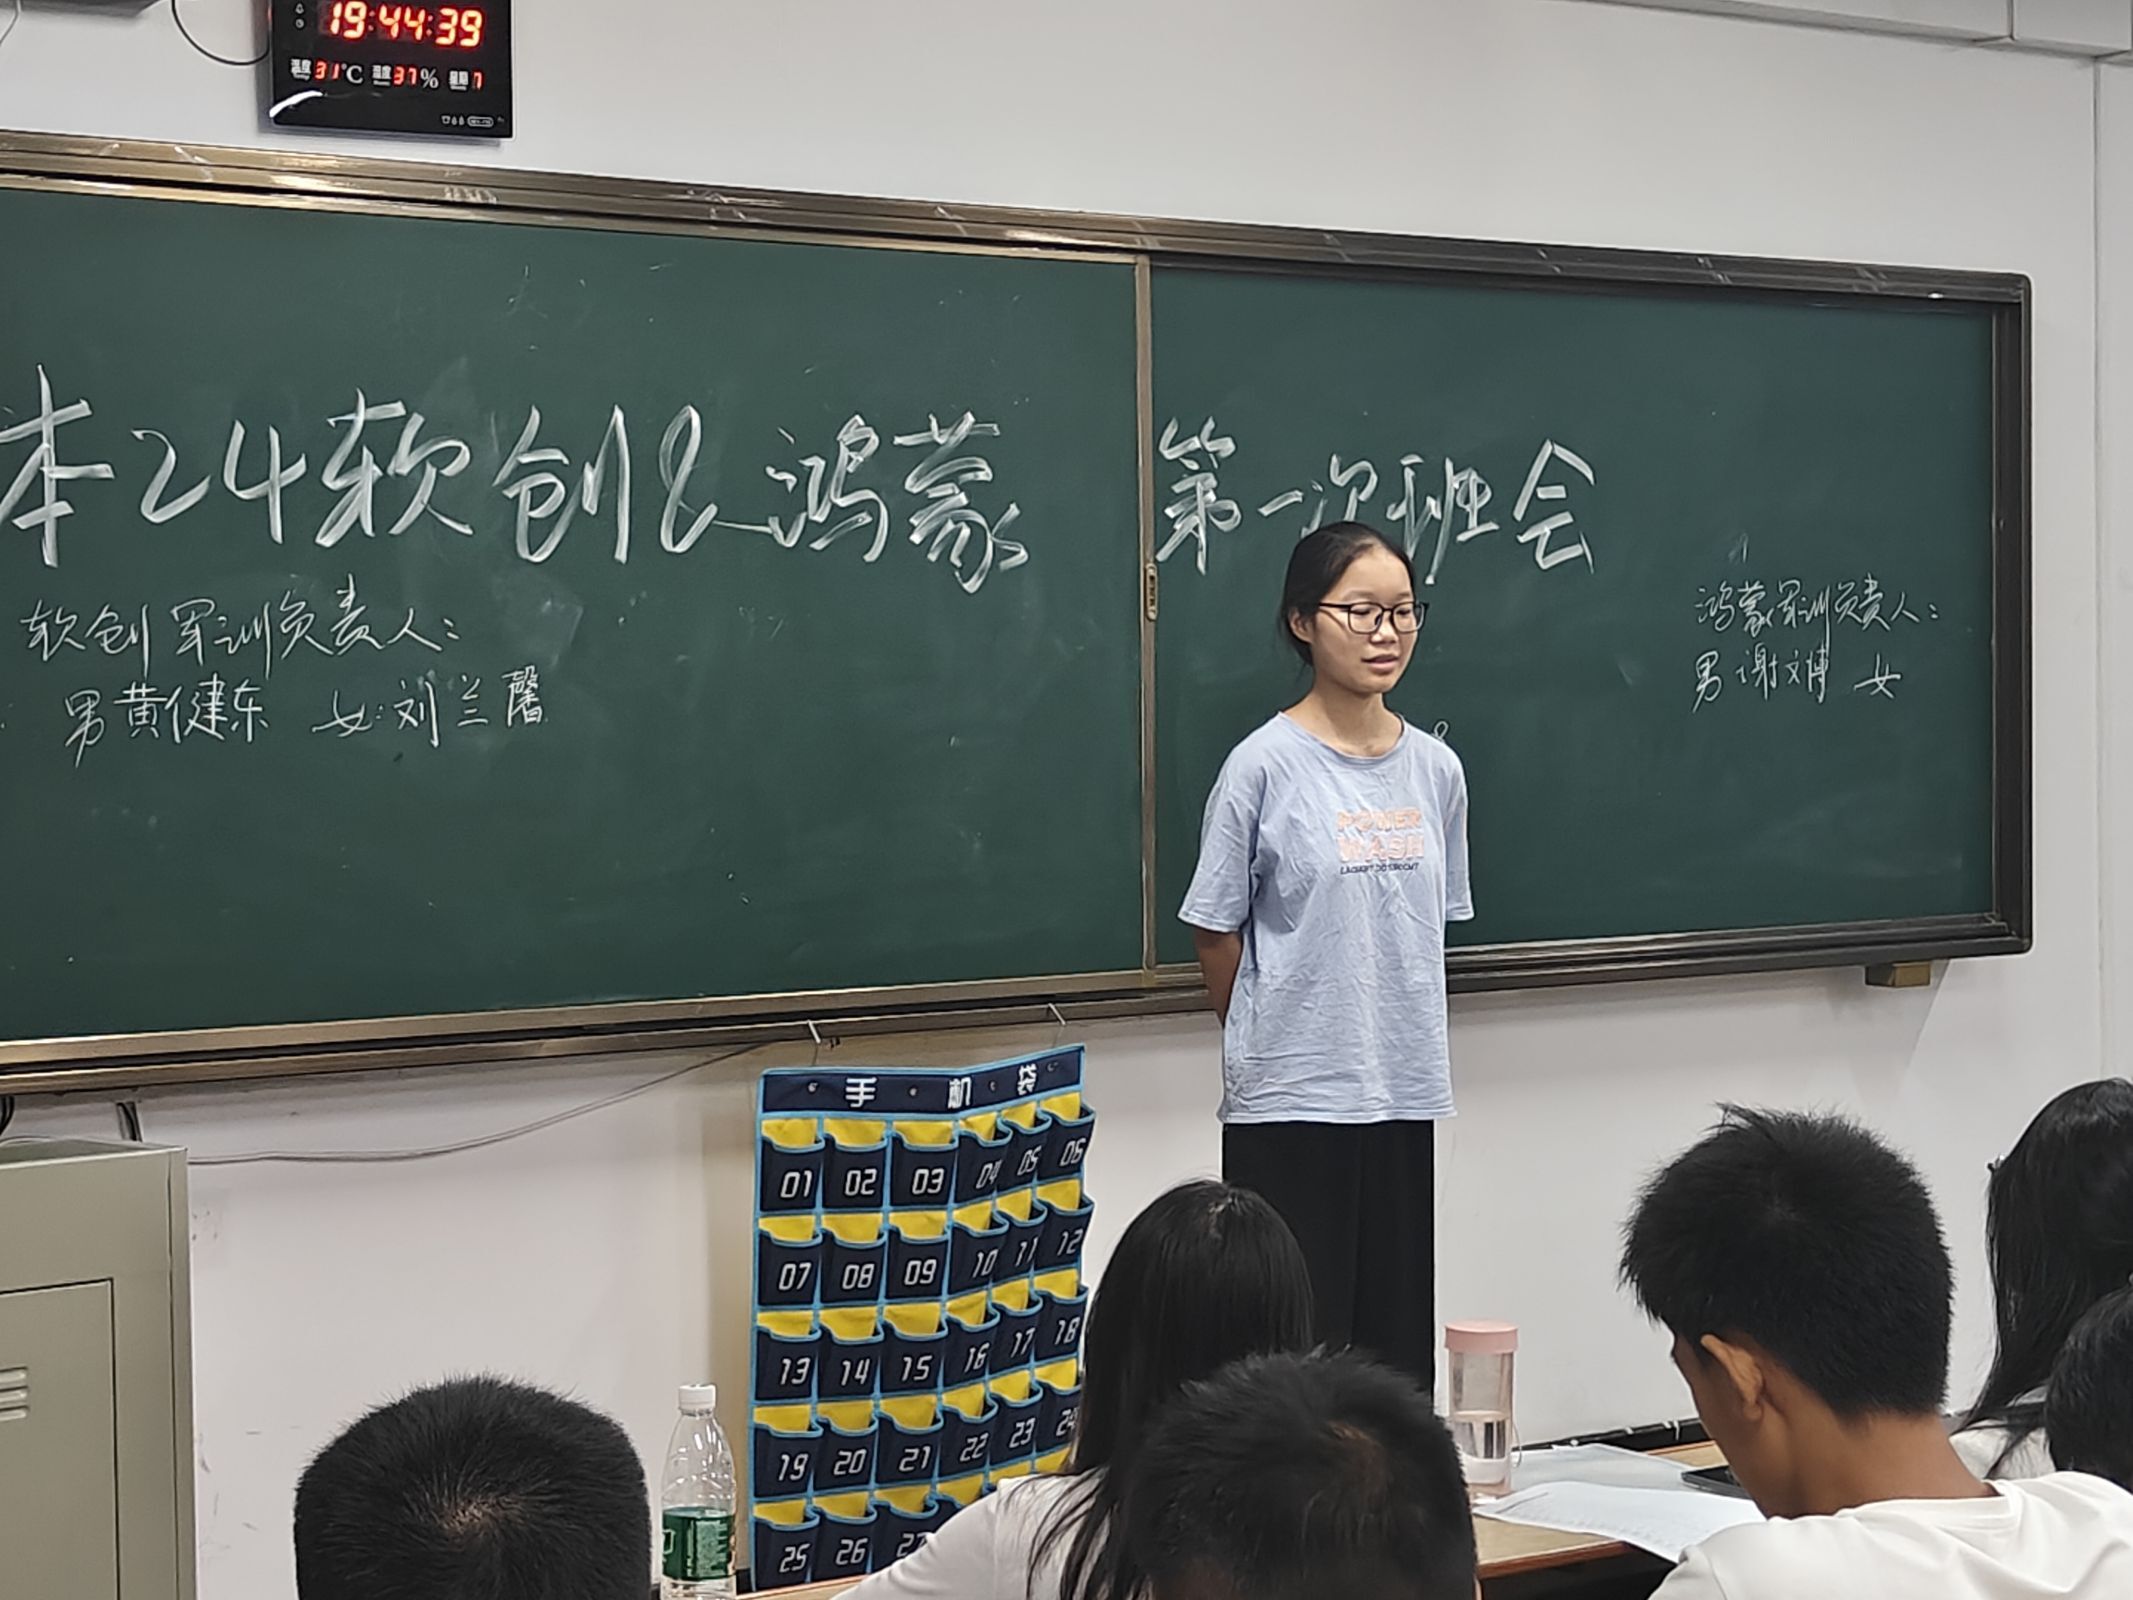 19:44:39
温度 31℃ 湿度 37% 星期 7
本24软创&鸿蒙 第一次班会
软创军训负责人:
男黄健东 女:刘兰馨
鸿蒙军训负责人:
男 谢文博 女
POWER
WASH
手机袋
01 02 03 04 05 06
07 08 09 10 11 12
13 14 15 16 17 18
19 20 21 22 23 24
25 26 27